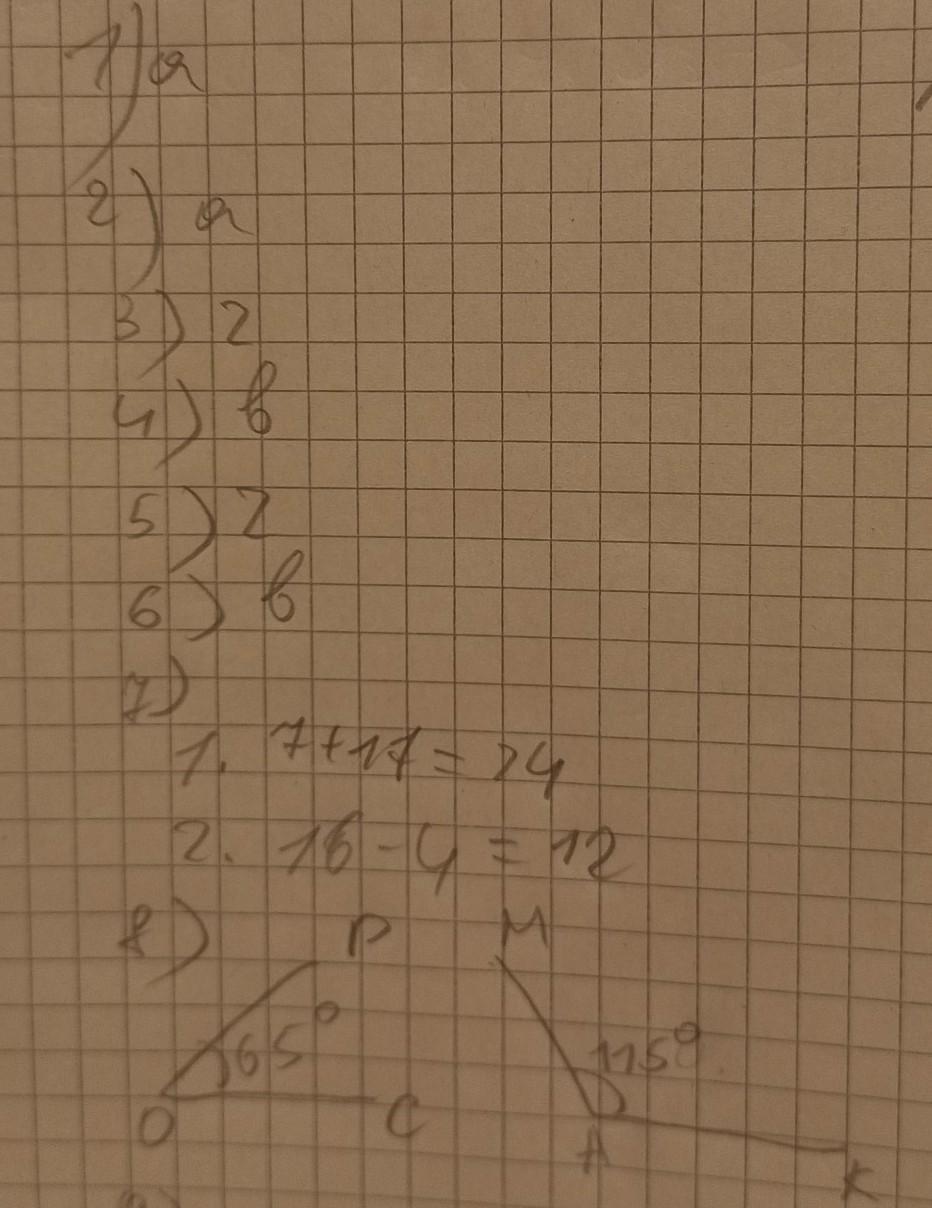 1) а
2) а
3) г
4) в
5) г
6) в
7)
1. 7+17=24
2. 16-4=12
8) P M
65° 115°
O C A K